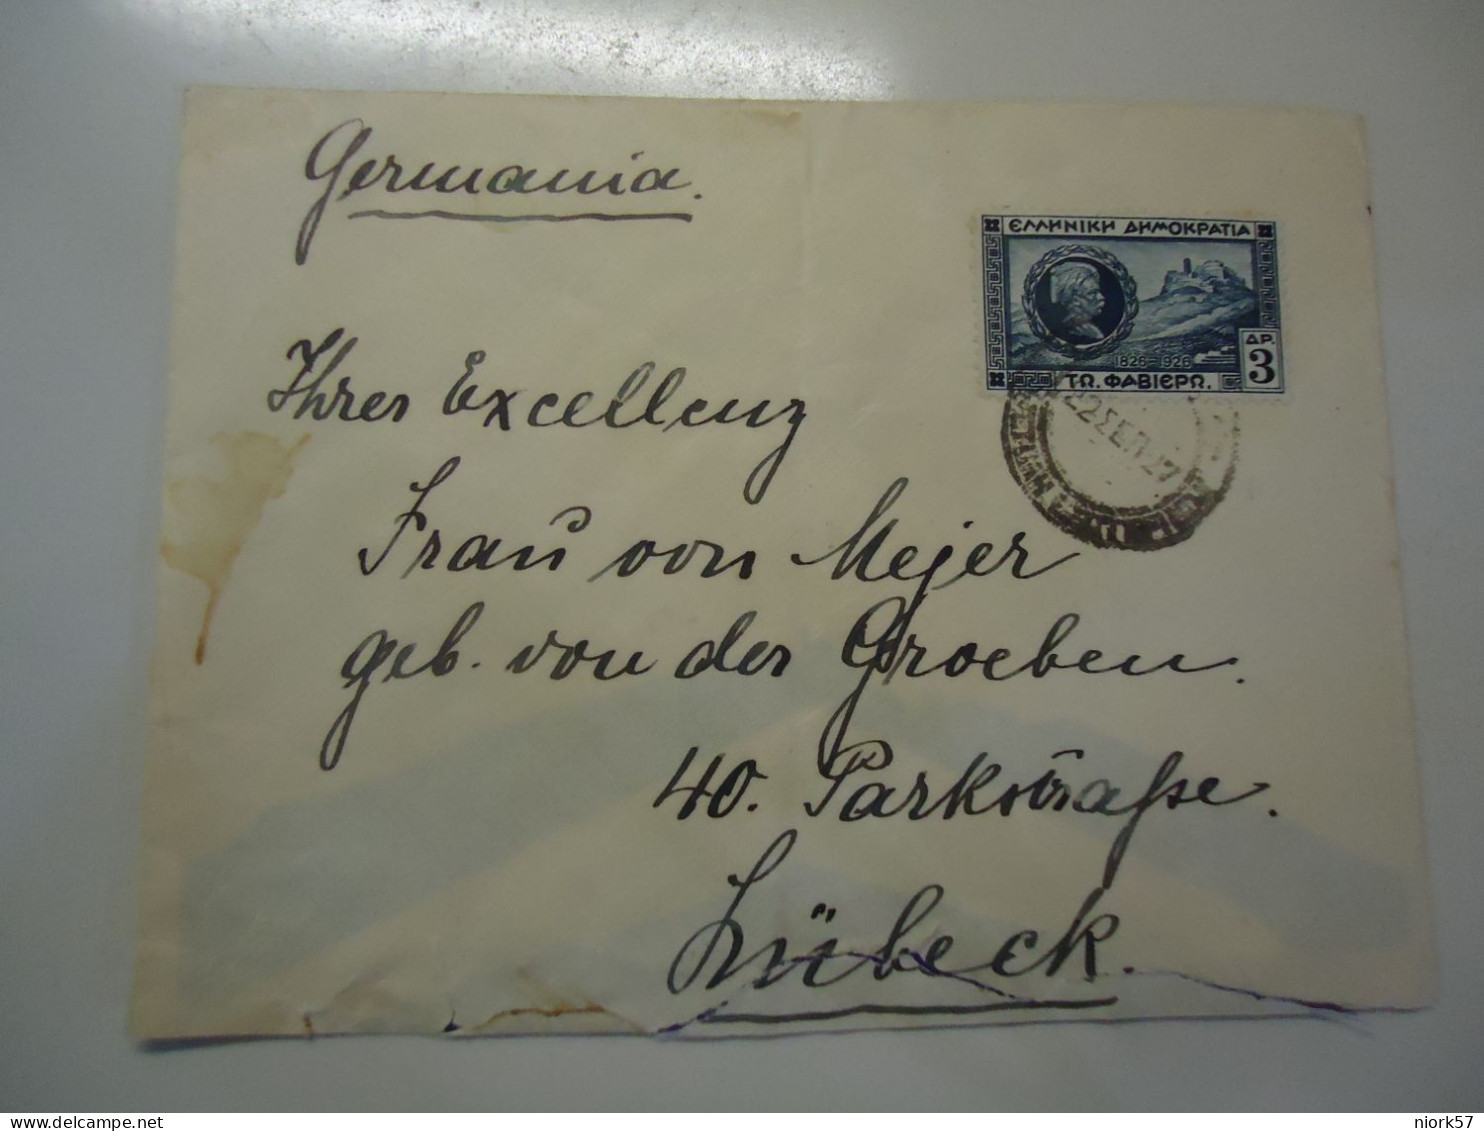 Germania.
ΕΛΛΗΝΙΚΗ ΔΗΜΟΚΡΑΤΙΑ
1826-1926
ΔΡ.
3
ΤΩ. ΦΑΒΙΕΡΩ.
22 ΣΕΠ 27
Ihrer Excellenz
Frau von Mejer
geb. von der Groeben.
40. Parkstraße.
Lübeck.
delcampe.net
niork57